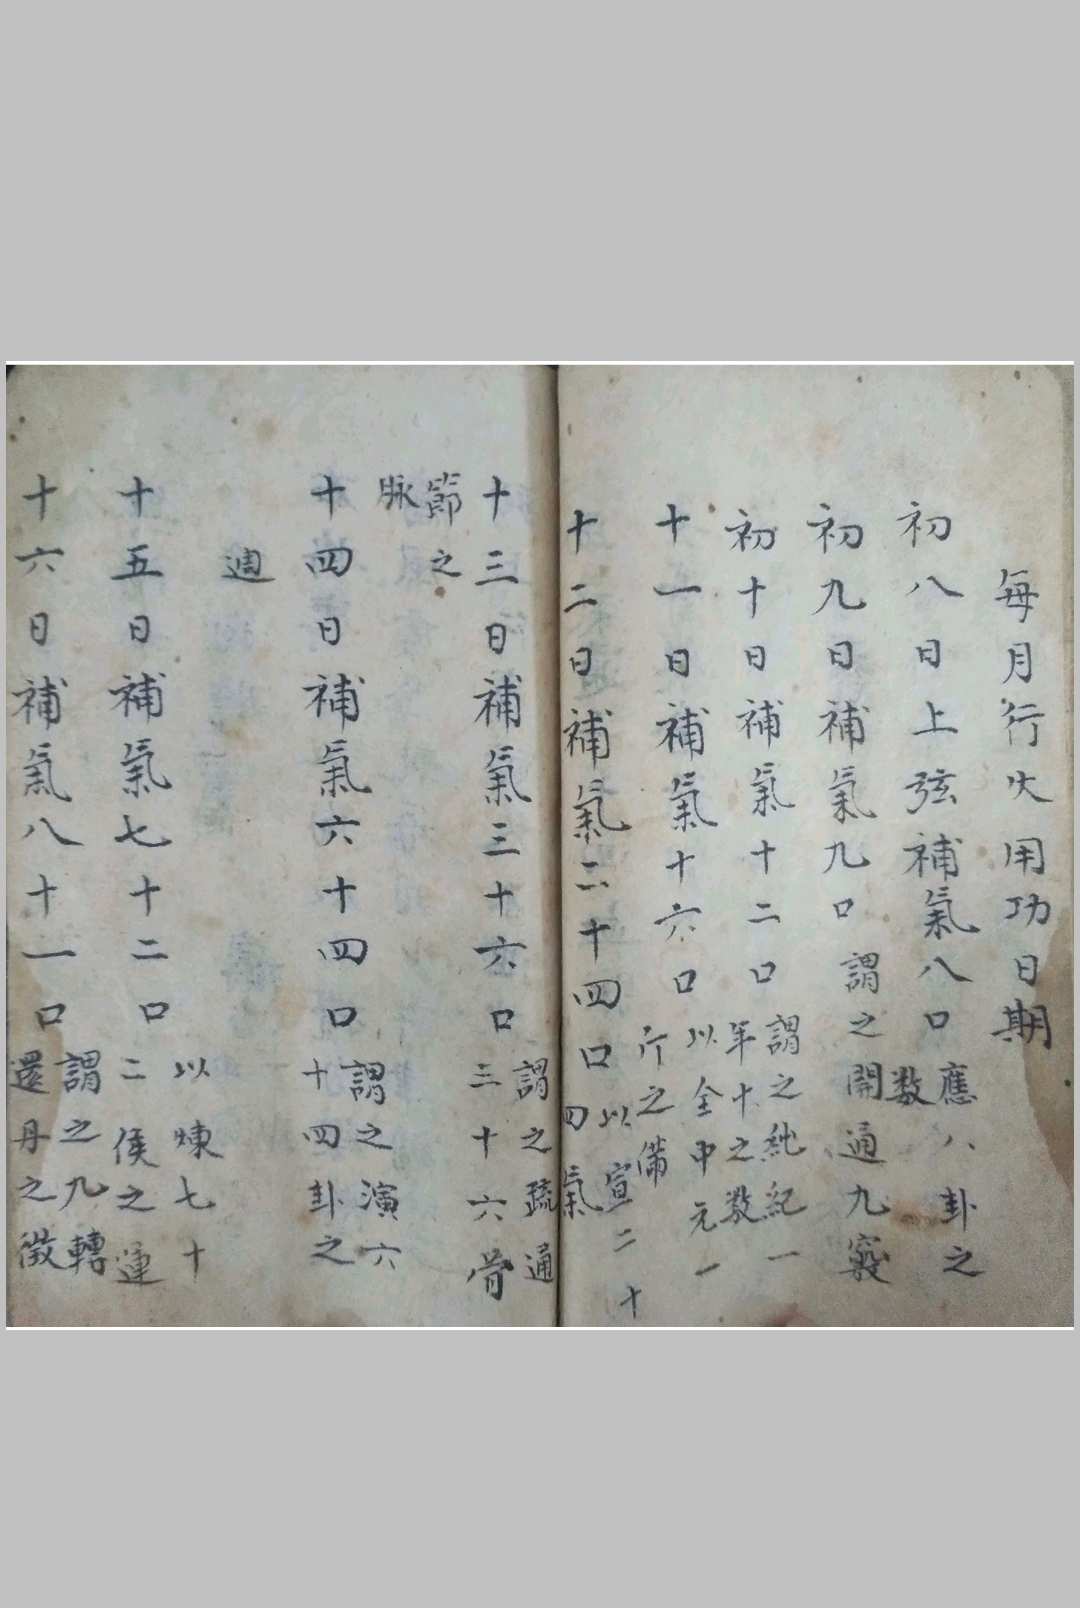 每月行火用功日期
初八日上弦補氣八口應八卦之數
初九日補氣九口謂之開通九竅
初十日補氣十二口謂之純紀一年十之數
十一日補氣十六口以全中元一斤之備
十二日補氣二十四口以宣二十四氣
十三日補氣三十六口謂之疏通三十六骨
節之
脉
十四日補氣六十四口謂之演六十四卦之
週
十五日補氣七十二口以煉七十二侯之運
十六日補氣八十一口謂之九轉還丹之徵